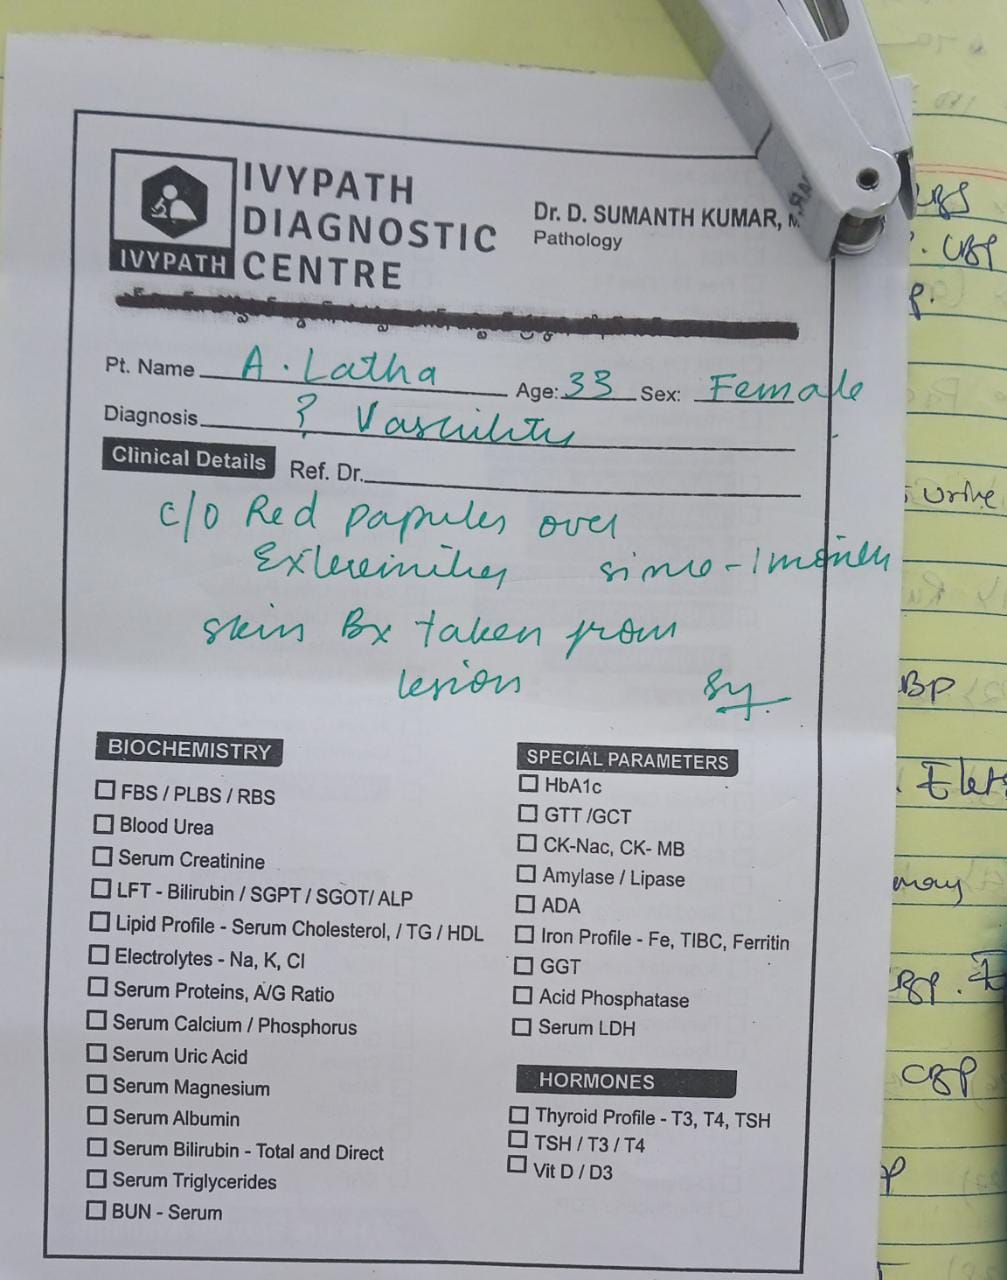 IVYPATH
DIAGNOSTIC
CENTRE
IVYPATH
Dr. D. SUMANTH KUMAR,
Pathology
Pt. Name A. Latha Age: 33 Sex: Female
Diagnosis ? Vasculitis
Clinical Details Ref. Dr.
c/o Red papules over
Extremities since - 1 month
skin Bx taken from
lesion
BIOCHEMISTRY
FBS / PLBS / RBS
Blood Urea
Serum Creatinine
LFT - Bilirubin / SGPT / SGOT/ ALP
Lipid Profile - Serum Cholesterol, / TG / HDL
Electrolytes - Na, K, Cl
Serum Proteins, A/G Ratio
Serum Calcium / Phosphorus
Serum Uric Acid
Serum Magnesium
Serum Albumin
Serum Bilirubin - Total and Direct
Serum Triglycerides
BUN - Serum
SPECIAL PARAMETERS
HbA1c
GTT /GCT
CK-Nac, CK- MB
Amylase / Lipase
ADA
Iron Profile - Fe, TIBC, Ferritin
GGT
Acid Phosphatase
Serum LDH
HORMONES
Thyroid Profile - T3, T4, TSH
TSH / T3 / T4
Vit D / D3
CBP
Urine
BP
CBP